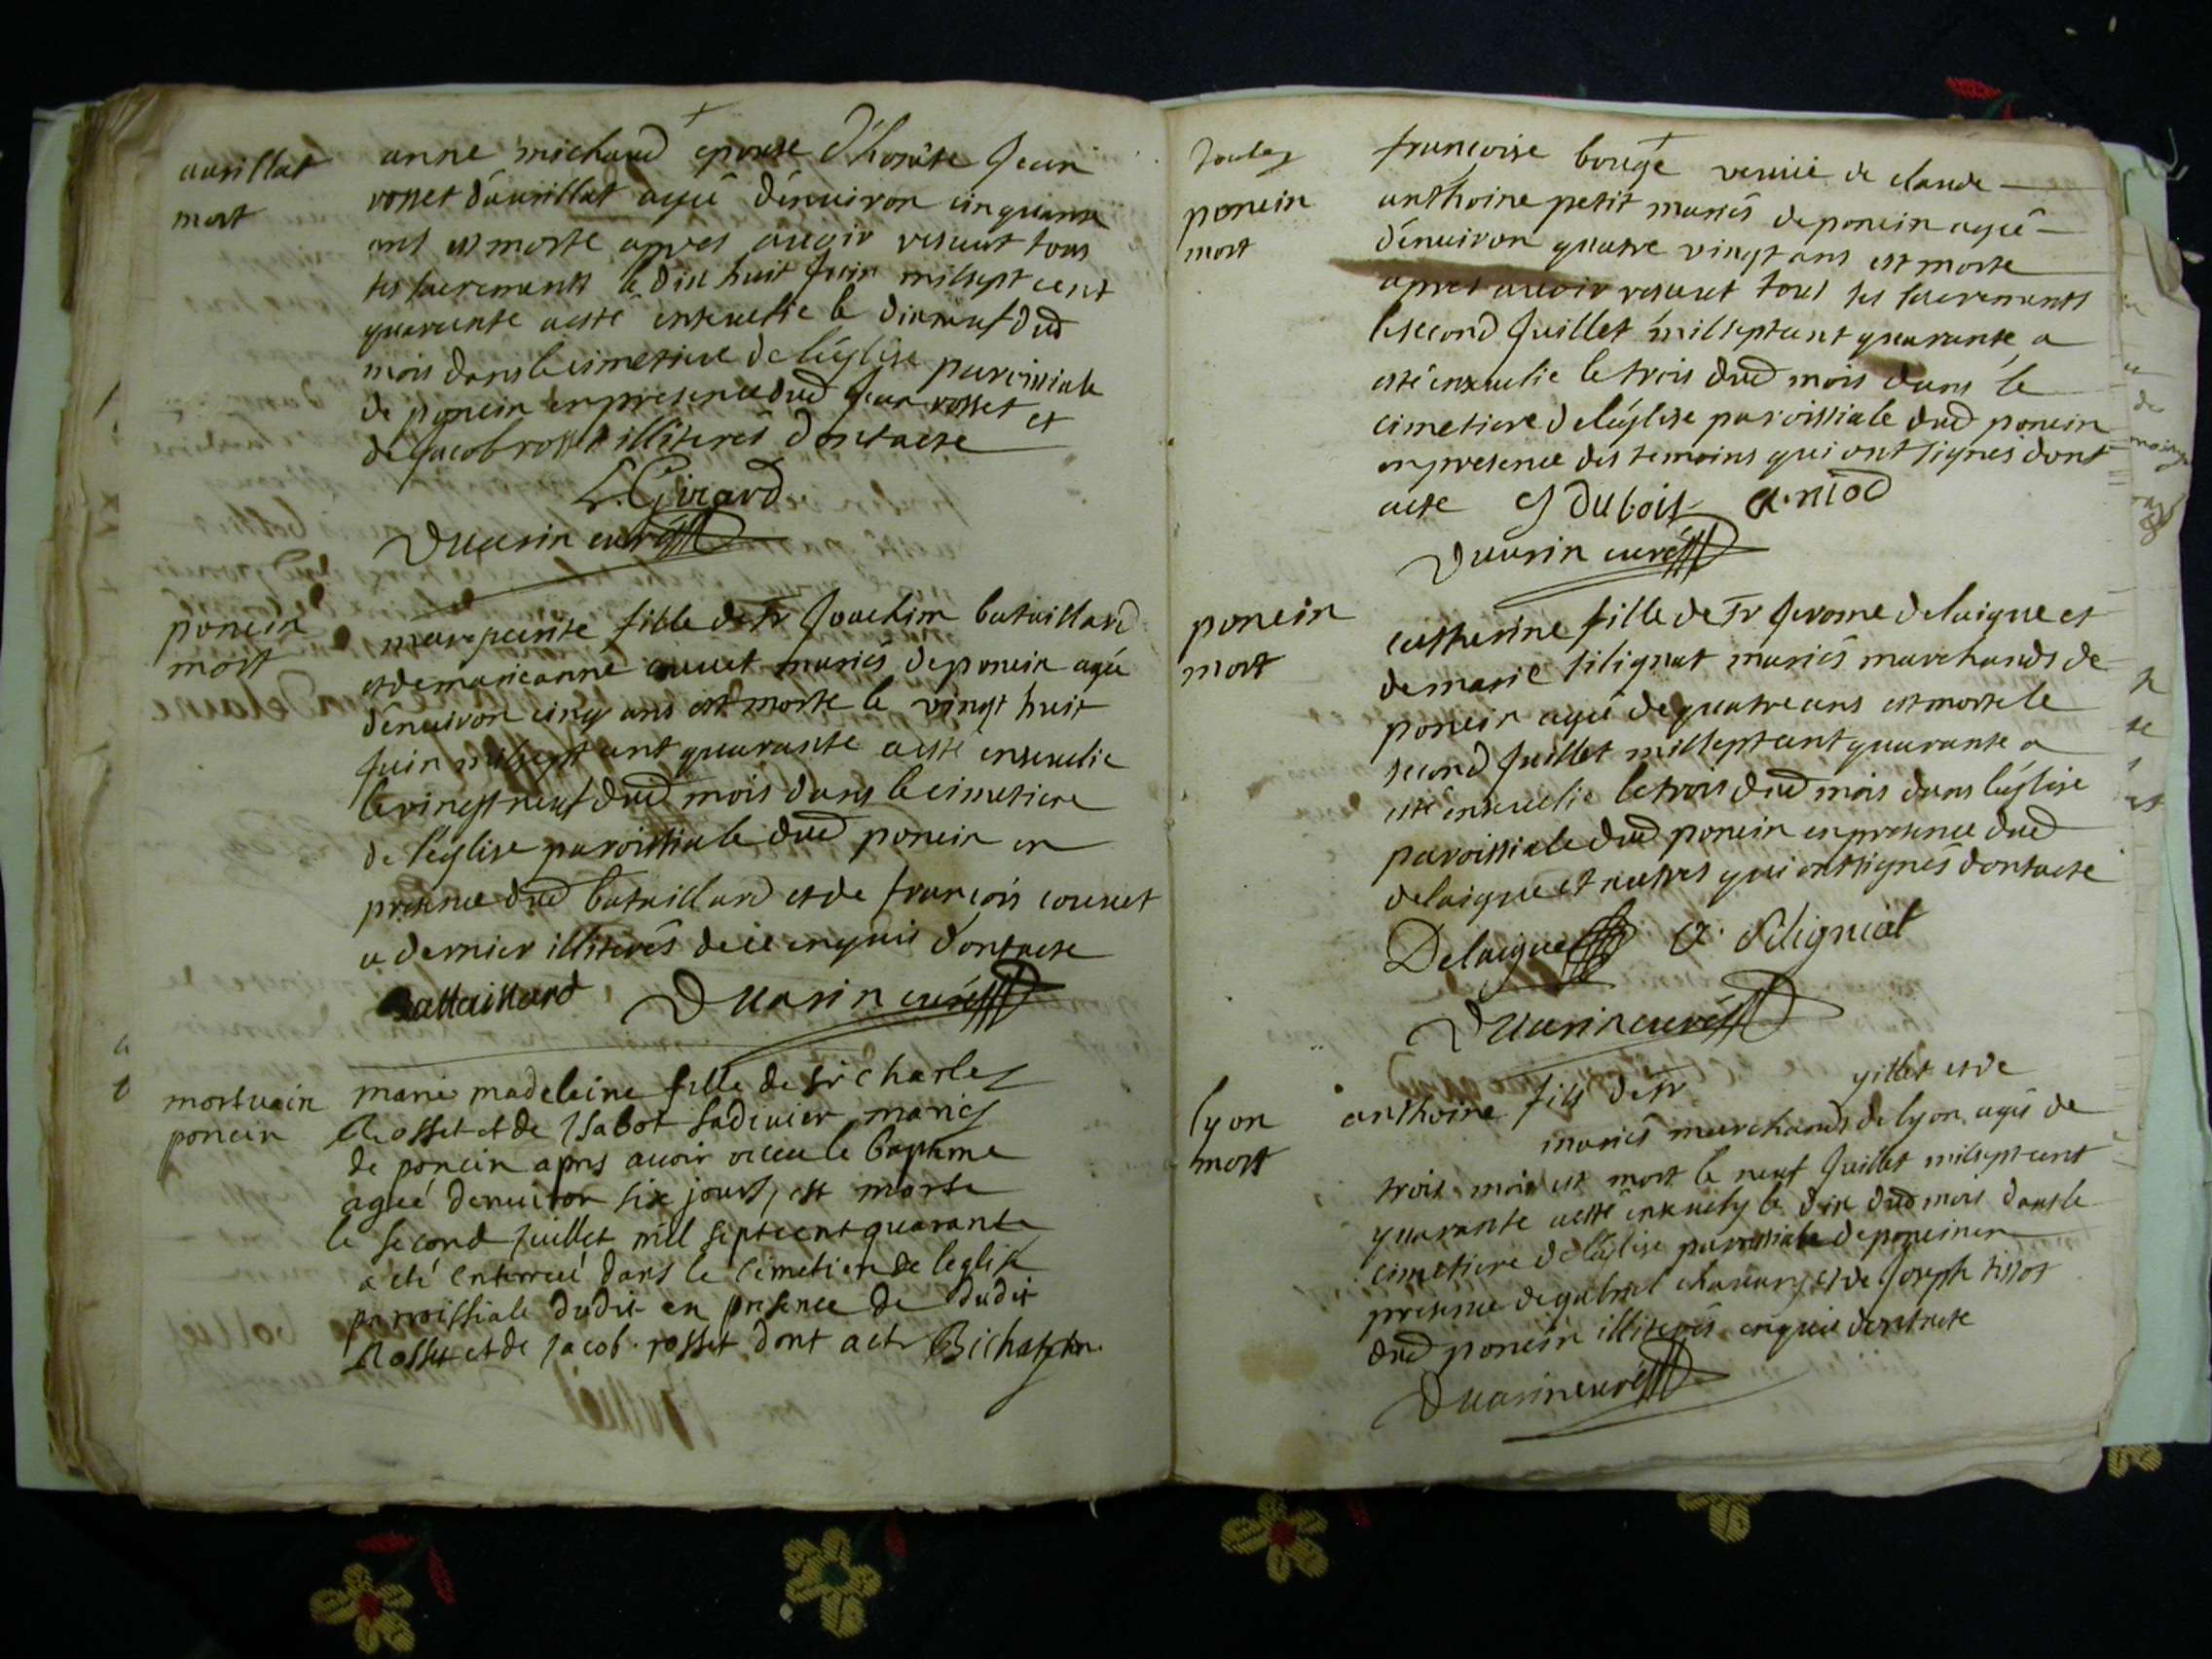 avrillat
mort
anne michaud epouse d'honste Jean
rosset d'avrillat agée d'enuiron cinquante
ans est morte apres auoir receut tous
ses sacrements le dix huit Juin milsept cent
quarante aesté enseuelie le dixneuf dud
mois dans le cimetiere de l'église paroissiale
de poncin en presence dud Jean rosset et
de Jacob rosset illiterés dont acte
L. Girard
Duarin curé
poncin
mort
marguerite fille de Sr Joachim bataillard
et de marieanne couuet mariés de poncin agée
d'enuiron cinq ans est morte le vingt huit
Juin milsept cent quarante aesté enseuelie
le vingt neuf dud mois dans le cimetiere
de l'église paroissiale dud poncin en
presence dud bataillard et de françois couuet
ce dernier illiterés de ce enquis dont acte
Battaillard Duarin curé
poncin
marie madelaine fille de Sr Charles
Rosset et de Isabot maries
de poncin apres auoir receu le baptême
ageé denuiron six jours, est morte
le second Juillet mil septcent quarante
a eté enterreé dans le cimetiere de leglise
parroissiale dudit en presence de dudit
Rosset et de Jacob rosset dont acte
poncin
mort
francoise bouge veuue de claude
anthoine petit mariés de poncin agée
d'enuiron quatre vingt ans est morte
apres auoir receut tous ses sacrements
le second Juillet milseptcent quarante a
esté enseuelie le trois dud mois dans le
cimetiere de l'église paroissiale dud poncin
en presence des temoins qui ont signés dont
acte Dubois
Duarin curé
poncin
mort
catherine fille de Sr Jerome delaigue et
de marie silignat mariés marchands de
poncin agée de quatre ans est morte le
second Juillet milseptcent quarante a
esté enseuelie le trois dud mois dans l'église
paroissiale dud poncin en presence dud
delaigue et autres qui ont signés dont acte
Delaigue
Duarin curé
lyon
mort
anthoine fils de Sr gillet et de
mariés marchands de lyon agés de
trois mois est mort le neuf Juillet milseptcent
quarante aesté enseuely le dix dud mois dans le
cimetiere de l'église paroissiale de poncin en
presence de gabriel et de Joseph tissot
dud poncin illiterés enquis dont acte
Duarin curé